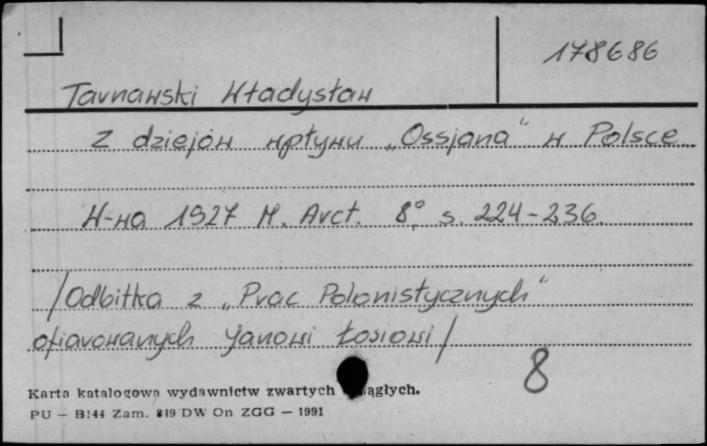 178686
Tarnawski Władysław
Z dziejów wpływu „Ossjana" w Polsce
W-wa 1927 M. Arct. 8° s. 224-236
/Odbitka z „Prac Polonistycznych"
ofiarowanych Janowi Łosiowi/
8
Karta katalogowa wydawnictw zwartych ągłych.
PU — B144 Zam. 819 DW On ZGG — 1991